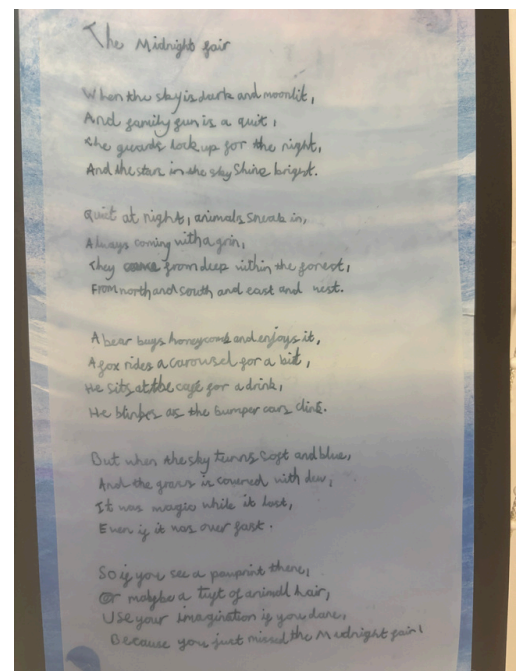 The Midnight fair
When the sky is dark and moonlit,
And family fun is a quit,
The guards lock up for the night,
And the stars in the sky shine bright.
Quit at night, animals sneak in,
Always coming with a grin,
They come from deep within the forest,
From north and south and east and west.
A bear buys honeycomb and enjoys it,
A fox rides a carousel for a bit,
He sits at the café for a drink,
He blinks as the bumper cars clink.
But when the sky turns soft and blue,
And the grass is covered with dew,
It was magic while it last,
Even if it was over fast.
So if you see a pawprint there,
Or maybe a tuft of animall hair,
Use your imagination if you dare,
Because you just missed the Midnight fair!